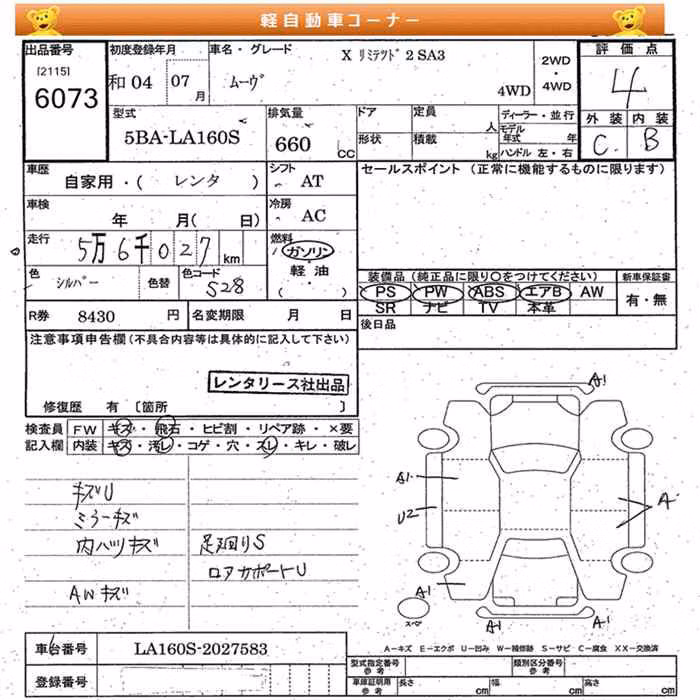 軽自動車コーナー
出品番号 初度登録年月 車名・グレード X リミテッド 2 SA3 2WD・4WD 評価点
[2115]
6073 和04 07月 ムーヴ 4WD 4
型式 排気量 ドア 定員 人 ディーラー・並行 外装 内装
5BA-LA160S 660 CC 形状 積載 kg モデル年式 年 C B
ハンドル 左・右
車歴 シフト セールスポイント(正常に機能するものに限ります)
自家用・( レンタ ) AT
車検 年 月( 日) 冷房 AC
走行 5万6千027 km 燃料 ガソリン
軽・油
( ・ )
色 シルバー 色替 色コード 528
装備品(純正品に限り○をつけてください) 新車保証書
PS PW ABS エアB AW 有・無
SR ナビ TV 本革
R券 8430 円 名変期限 月 日 後日品
注意事項申告欄(不具合内容等は具体的に記入して下さい)
レンタリース社出品
修復歴 有 [箇所 ]
検査員 FW キズ・飛石・ヒビ割・リペア跡・×要
記入欄 内装 キズ・汚レ・コゲ・穴・スレ・キレ・破レ
キズU
ミラーキズ
内ハツリキズ 足廻りS
ロアサポートU
AWキズ
A1
A1
U2
A
A1
A1 A1
スペア
A-キズ E-エクボ U-凹み W-補修跡 S-サビ C-腐食 XX-交換済
車台番号 LA160S-2027583
型式指定番号 参考 類別区分番号 参考
登録番号 車庫証明用 参考 長さ cm 幅 cm 高さ cm